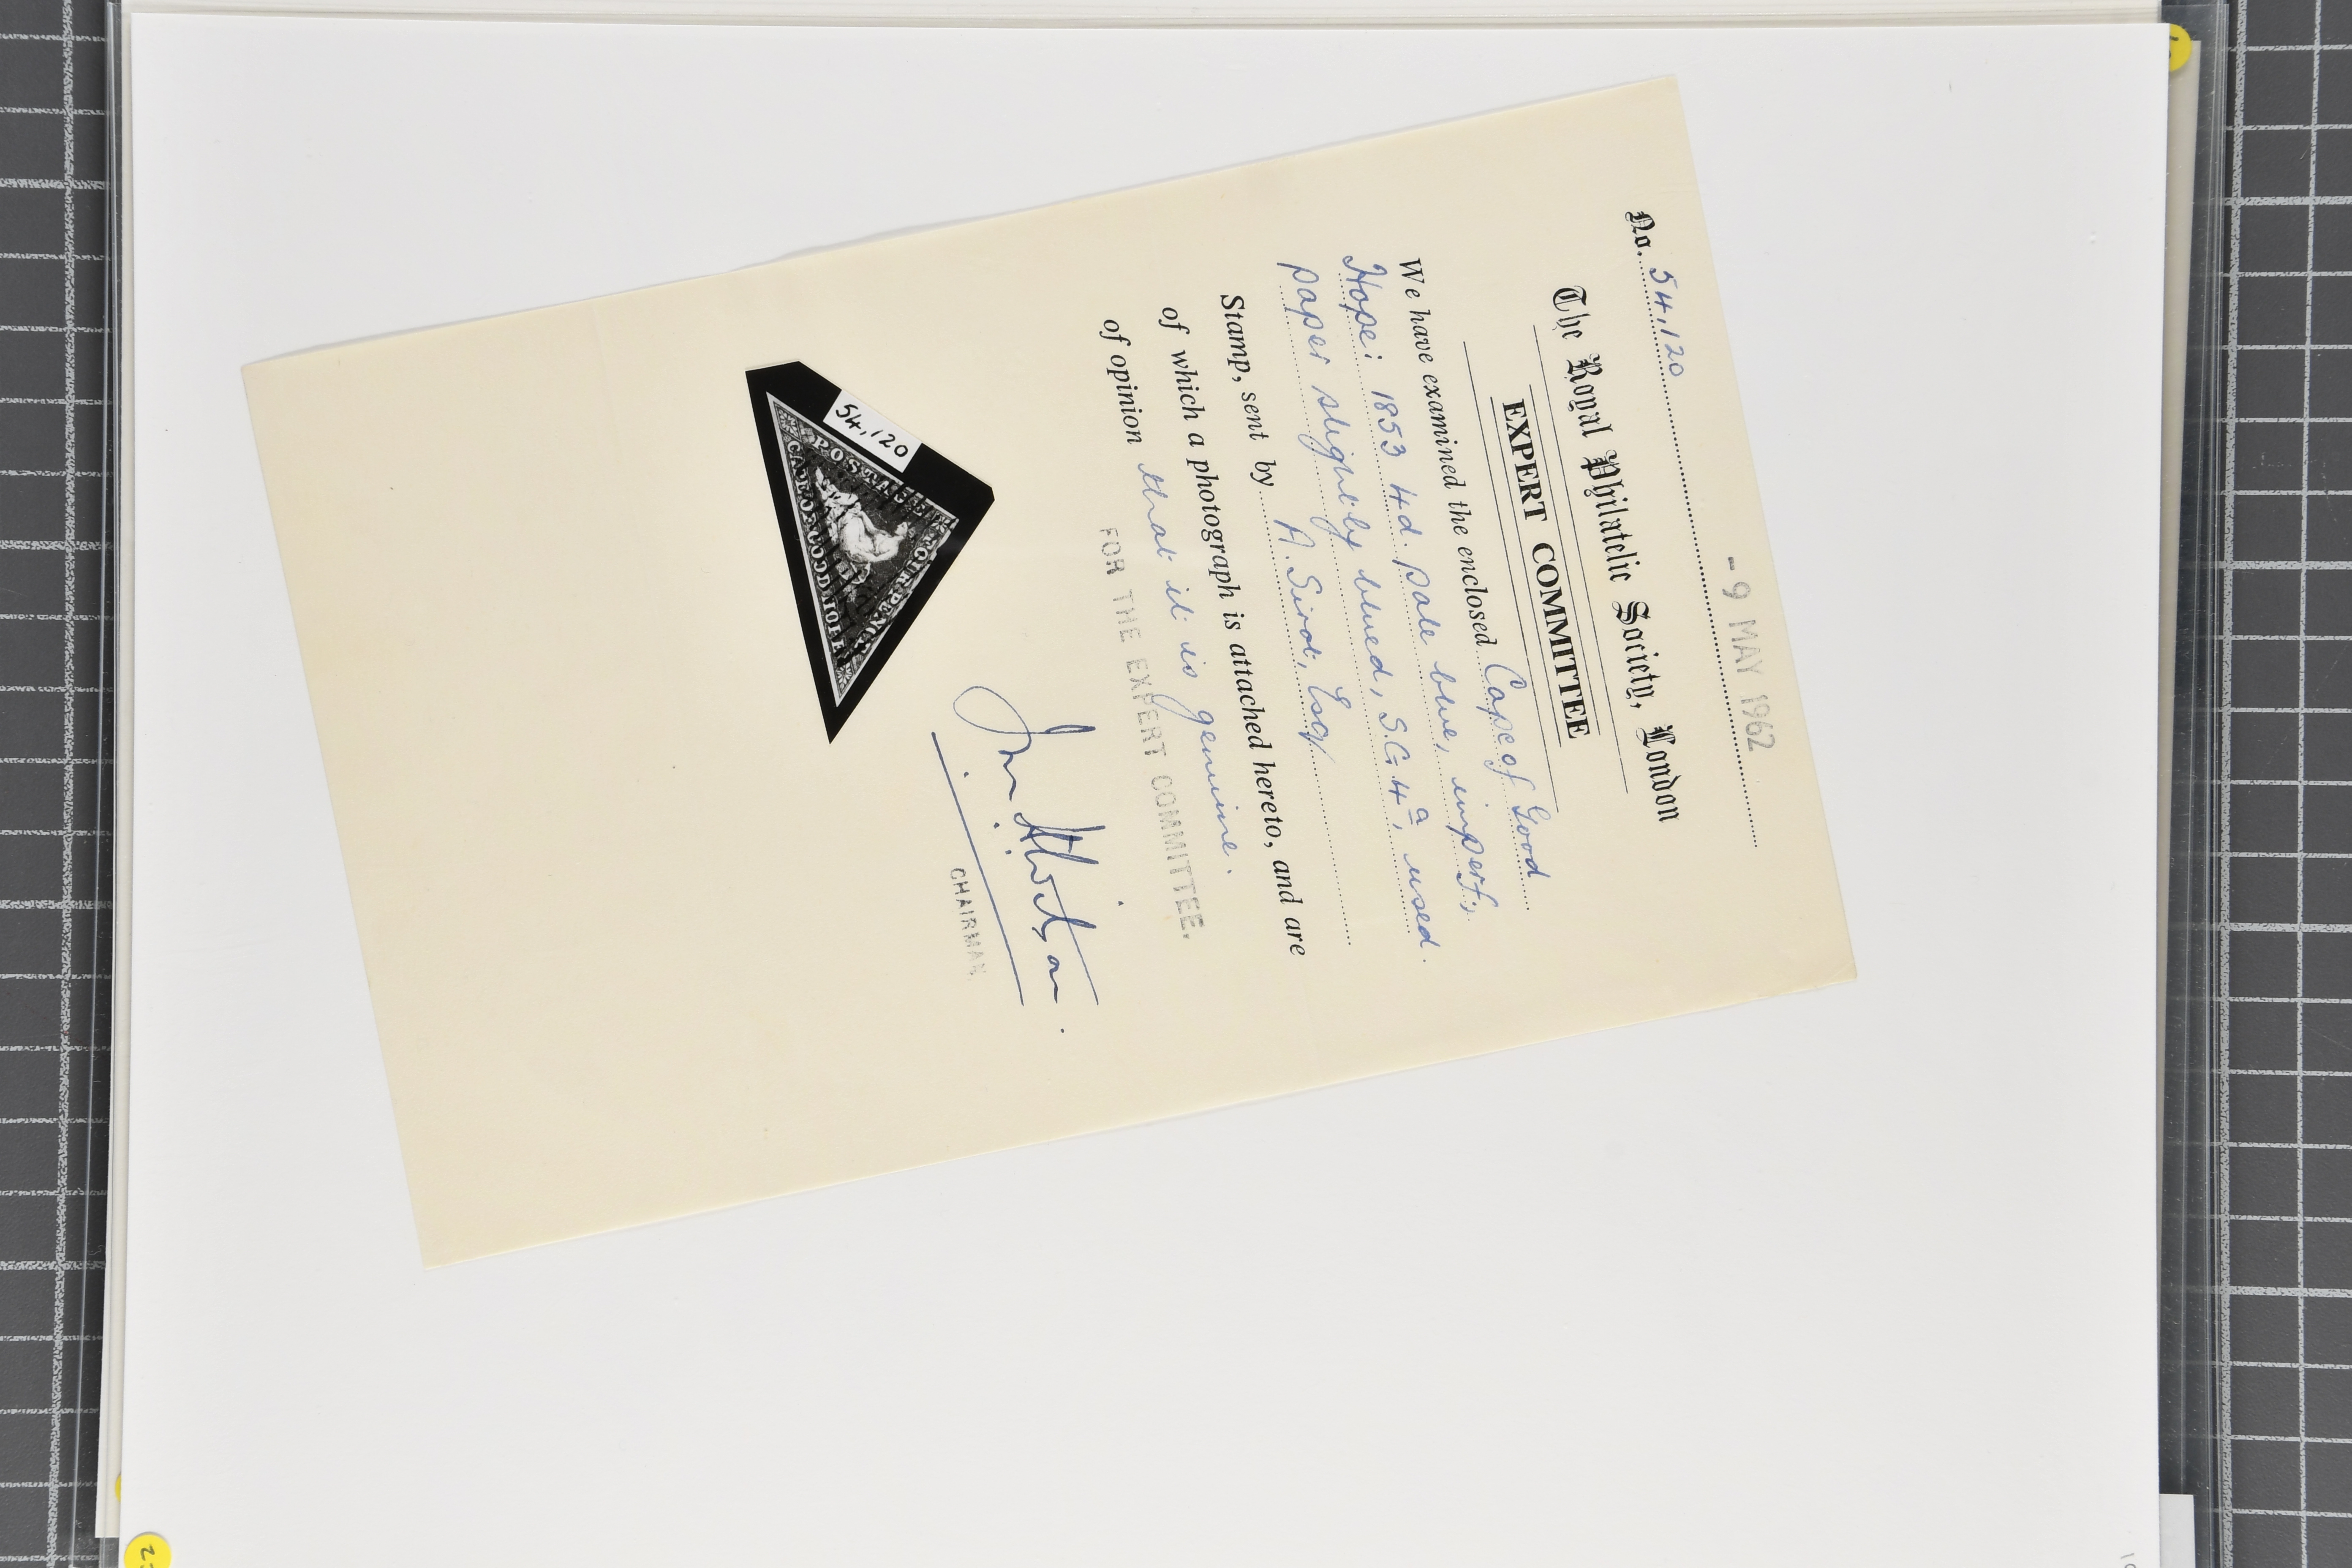 - 9 MAY 1962
No. 54,120
The Royal Philatelic Society, London
EXPERT COMMITTEE
We have examined the enclosed Cape of Good
Hope: 1853 4d. pale blue, imperf;
paper slightly blued, S.G.4a, used.
Stamp, sent by A. Sirot, Esq
of which a photograph is attached hereto, and are
of opinion that it is genuine.
FOR THE EXPERT COMMITTEE.
CHAIRMAN
54,120
POSTAGE
FOUR PENCE
CAPE OF GOOD HOPE